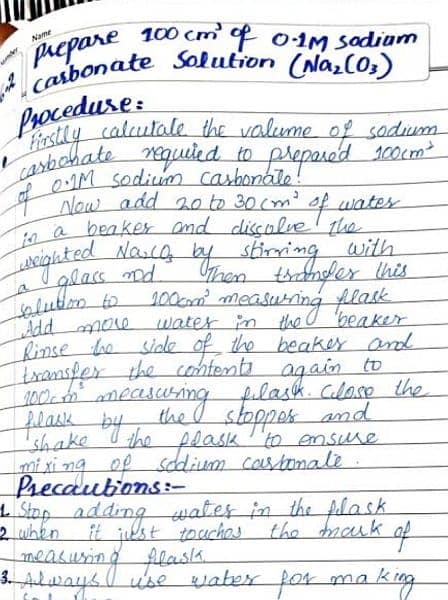 Name
Prepare 100 cm³ of 0.1M sodium
carbonate Solution (Na₂CO₃)
Procedure:
Firstly calculate the volume of sodium
carbonate required to prepared 100cm³
of 0.1M sodium carbonate.
Now add 20 to 30 cm³ of water
in a beaker and dissolve the
weighted Na₂CO₃ by stirring with
a glass rod Then transfer this
solution to 100cm³ measuring flask
Add more water in the beaker
Rinse the side of the beaker and
transfer the contents again to
100cm³ measuring flask. Close the
flask by the stopper and
shake the flask to ensure
mixing of sodium carbonate.
Precautions:-
1. Stop adding water in the flask
2. when it just touches the mark of
measuring flask.
3. Always use water for making